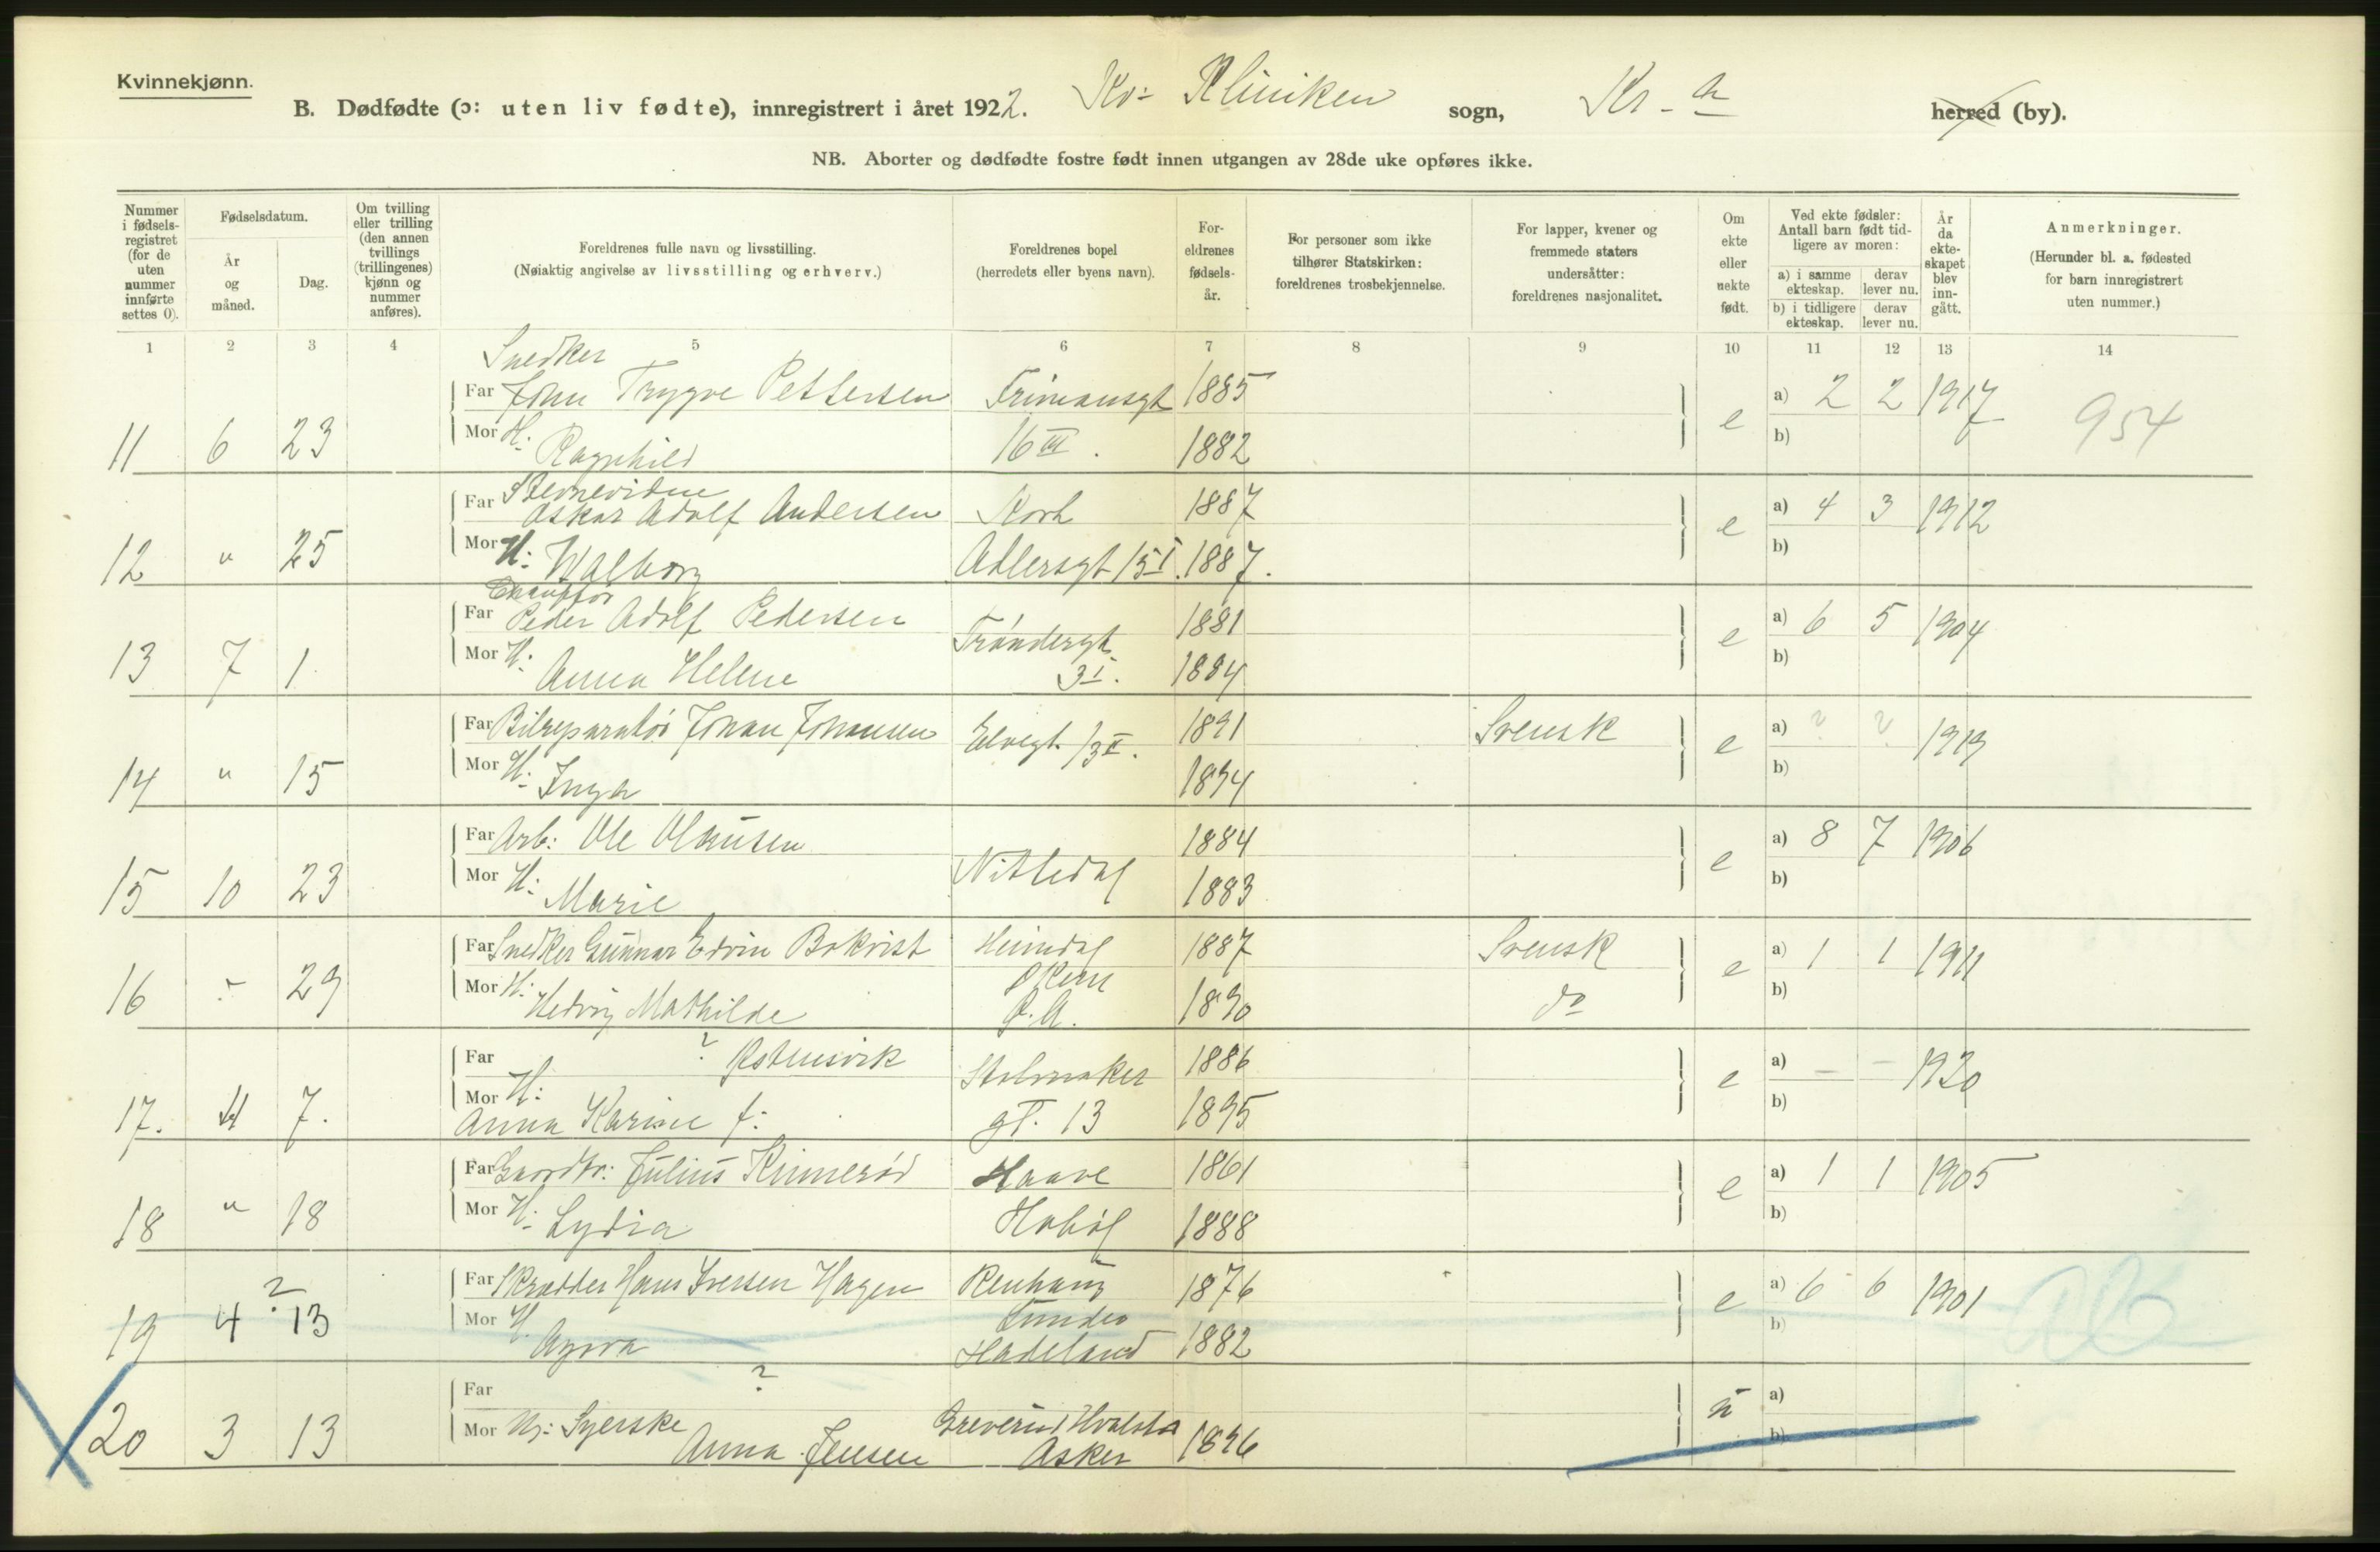 Kvinnekjønn.
B. Dødfødte (ɔ: uten liv fødte), innregistrert i året 1922. Kv: Kliniken sogn, Kr-a herred (by).
NB. Aborter og dødfødte fostre født innen utgangen av 28de uke opføres ikke.
Nummer i fødsels-registret (for de uten nummer innførte settes 0).
Fødselsdatum.
År og måned.
Dag.
Om tvilling eller trilling (den annen tvillings (trillingenes) kjønn og nummer anføres).
Foreldrenes fulle navn og livsstilling.
(Nøiaktig angivelse av livsstilling og erhverv.)
Foreldrenes bopel
(herredets eller byens navn).
For-eldrenes fødsels-år.
For personer som ikke tilhører Statskirken: foreldrenes trosbekjennelse.
For lapper, kvener og fremmede staters undersåtter: foreldrenes nasjonalitet.
Om ekte eller uekte født.
Ved ekte fødsler: Antall barn født tid-ligere av moren:
a) i samme ekteskap. derav lever nu.
b) i tidligere ekteskap. derav lever nu.
År da ekte-skapet blev inn-gått.
Anmerkninger.
(Herunder bl. a. fødested for barn innregistrert uten nummer.)
1 2 3 4 5 6 7 8 9 10 11 12 13 14
Snedker
Far John Trygve Pettersen Frimansgt 1885 a) 2 2 1917
11 6 23 Mor H. Ragnhild 16 III. 1882 e b) 954
Stevnevidne
Far Oskar Adolf Andersen 1887 a) 4 3 1912
12 " 25 Mor H: Walborg Adlersgt 15 I. 1887. e b)
Chauffør
Far Peder Adolf Pedersen Trøndergt. 1881 a) 6 5 1904
13 7 1 Mor H. Anna Helene 3 I. 1884 e b)
Far Bilreparatør Johan Johansen 13 II. 1891 Svensk a) ? ? 1919
14 " 15 Mor H: Inga 1894 e b)
Far Arb: Ole Olausen Nittedal 1884 a) 8 7 1906
15 10 23 Mor H: Marie 1883 e b)
Far Snedker Gunnar Edvin Bokvist Heimdal 1887 Svensk a) 1 1 1911
Økern
16 - 29 Mor H: Hedvig Mathilde Ø.A. 1890 do e b)
Far ? Østensvik Stolmaker 1886 a) - - 1920
17. 7. Mor H: Anna Karine f: gt. 13 1895 e b)
Far Gaardbr: Julius Kinnerød Haave 1861 a) 1 1 1905
18 " 18 Mor H: Lydia Hobøl 1888 e b)
Far Skrædder Hans Iversen Hagen 1876 a) 6 6 1901
19 4 ? 13 Mor H. Hadeland 1882 e b)
Far ?
a)
20 3 13 Mor Ug: Syerske Anna Jensen Hvalstad Asker 1896 u b)